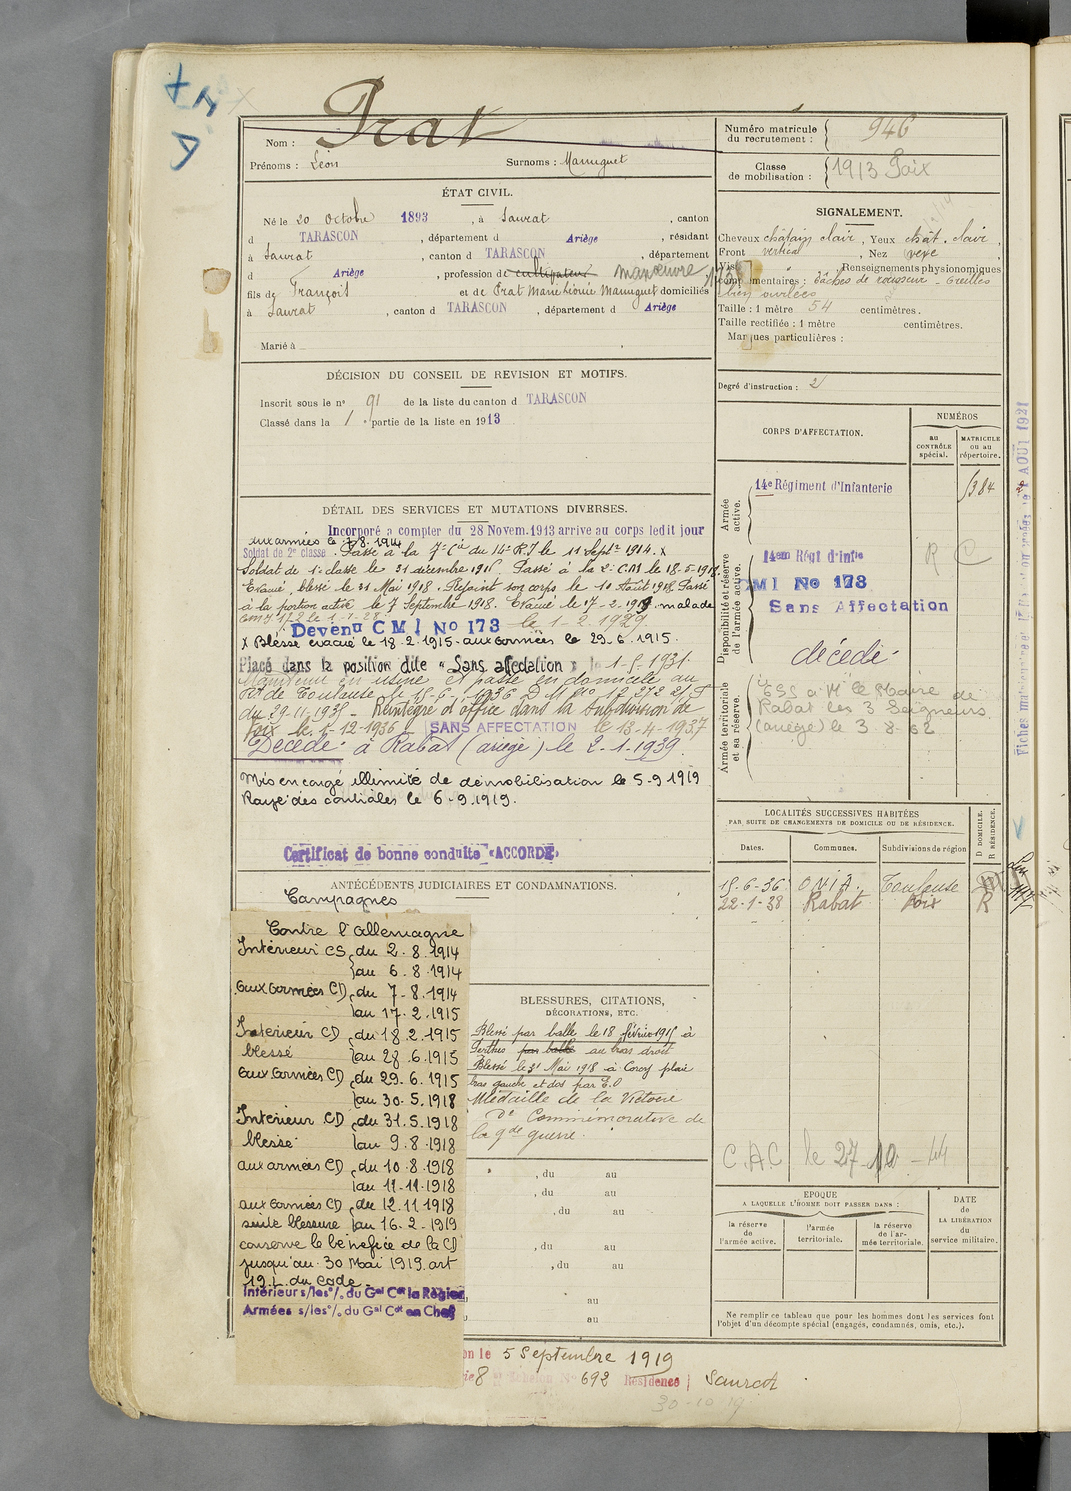 Prat
Nom :
Prénoms : Léon Surnoms : Manuguet
ÉTAT CIVIL.
Né le 20 octobre 1893, à Saurat, canton
d TARASCON, département d Ariège, résidant
à Saurat, canton d TARASCON, département
d Ariège, profession de cultivateur manœuvre
fils de François et de Prat Marie Manuguet domiciliés
à Saurat, canton d TARASCON, département d Ariège
Marié à
DÉCISION DU CONSEIL DE REVISION ET MOTIFS.
Inscrit sous le n° 91 de la liste du canton d TARASCON
Classé dans la 1 partie de la liste en 1913
DÉTAIL DES SERVICES ET MUTATIONS DIVERSES.
Incorporé a compter du 28 Novem. 1913 arrive au corps ledit jour
aux armées le 7.8.1914
Soldat de 2e classe. Passé à la 7e Cie du 14e R.I le 11 Septre 1914. x
Soldat de 1e classe le 31 décembre 1916. Passé à la 2e C.M le 18.5.1918.
Evacué, blessé le 31 Mai 1918. Rejoint son corps le 10 Août 1918. Passé
à la portion active le 7 Septembre 1918. Evacué le 17-2-1919. malade
Devenu C M I No 173 le 1-2-1929
x Blessé évacué le 18.2.1915. aux armées le 29.6.1915.
Placé dans la position dite « Sans affectation »
Maintenu en usine et passé en domicile au
de Toulouse le 15-6-1936 D M No 12.272 2/S
du 29-11-1935 - Réintégré d'office dans la subdivision de
Foix le 1-12-1936 - SANS AFFECTATION le 13-4-1937
Décédé à Rabat (ariège) le 2-1-1939
Mis en congé illimité de démobilisation le 5-9 1919
Rayé des contrôles le 6-9.1919.
Certificat de bonne conduite « ACCORDÉ »
ANTÉCÉDENTS JUDICIAIRES ET CONDAMNATIONS.
Campagnes
Contre l'allemagne
Intérieur CS du 2.8.1914
au 6.8.1914
aux armées CD du 7-8.1914
au 17.2.1915
Intérieur CD du 18.2.1915
blessé au 28.6.1915
aux armées CD du 29.6.1915
au 30.5.1918
Intérieur CD du 31.5.1918
blessé au 9.8.1918
aux armées CD du 10.8.1918
au 11-11.1918
aux armées CD du 12.11.1918
suite blessure au 16.2.1919
conserve le bénéfice de la CD
jusqu'au 30 Mai 1919. art
19. L. du Code.
Intérieur s/les o/. du Gal Cdt la Région
Armées s/les o/. du Gal Cdt en Chef
BLESSURES, CITATIONS,
DÉCORATIONS, ETC.
Blessé par balle le 18 février 1915 à
Perthes par balle au bras droit
Blessé le 31 Mai 1918 à Corcy plaie
bras gauche et dos par E.O
Médaille de la Victoire
do Commémorative de
la gde guerre.
, du au
, du au
, du au
, du au
, du au
au
au
on le 5 Septembre 1919
8 Echelon No 692 Résidence Saurat
30-10-19
Numéro matricule du recrutement : 946
Classe de mobilisation : 1913 Foix
SIGNALEMENT.
Cheveux châtain clair, Yeux chât. clair,
Front vertical, Nez vexe,
Renseignements physionomiques
complémentaires : tâches de rousseur - Oreilles
bien ourlées
Taille : 1 mètre 54 centimètres.
Taille rectifiée : 1 mètre centimètres.
Marques particulières :
Degré d'instruction : 2
CORPS D'AFFECTATION.
NUMÉROS
au CONTRÔLE spécial.
MATRICULE ou au répertoire.
Armée active.
14e Régiment d'Infanterie 1384
Disponibilité et réserve de l'armée active.
14em Régt d'Infie
R C
C M I No 173
Sans Affectation
décédé
Armée territoriale et sa réserve.
ESS a Mr le Maire de
Rabat les 3 Seigneurs
(ariège) le 3 8-62
LOCALITÉS SUCCESSIVES HABITÉES
PAR SUITE DE CHANGEMENTS DE DOMICILE OU DE RÉSIDENCE.
Dates. Communes. Subdivisions de région D DOMICILE. R RÉSIDENCE.
15-6-36 ONIA. Toulouse D
22-1-38 Rabat Foix R
C.A.C le 27-10-44
EPOQUE
A LAQUELLE L'HOMME DOIT PASSER DANS :
la réserve de l'armée active.
l'armée territoriale.
la réserve de l'armée territoriale.
DATE de LA LIBÉRATION du service militaire.
Ne remplir ce tableau que pour les hommes dont les services font
l'objet d'un décompte spécial (engagés, condamnés, omis, etc.).